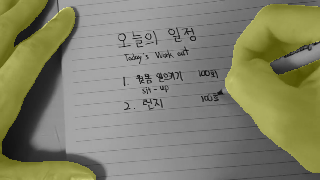 오늘의 일정
Today's Work out
1. 윗몸 일으키기 100회
sit-up
2. 런지 100회